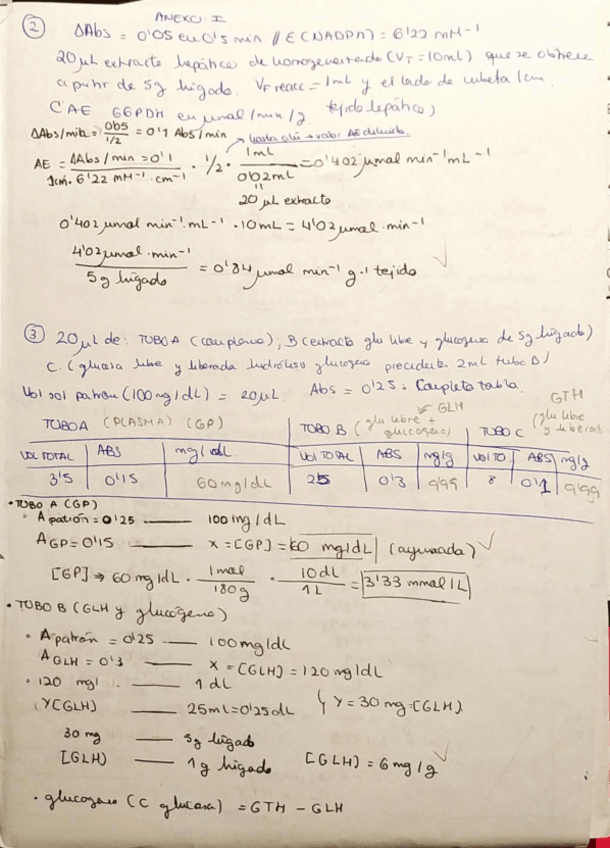 ANEXO I
② ΔAbs = 0'05 en 0'5 min // E (NADPH) = 6'22 mM⁻¹
20 μL extracto hepático de homogeneneizado (V_T = 10mL) que se obtiene
a partir de 5g hígado. V_F reacc = 1mL y el lado de cubeta 1cm.
C AE G6PDH en μmol/min/g tejido hepático)
ΔAbs/min = 0'05 / 1/2 = 0'1 Abs/min
hasta ahí → valor AE diluida.
AE = ΔAbs/min = 0'1 / 1cm · 6'22 mM⁻¹ · cm⁻¹ · 1/2 · 1mL / 0'02mL = 0'402 μmol min⁻¹ mL⁻¹
20 μL extracto
0'402 μmol min⁻¹ · mL⁻¹ · 10mL = 4'02 μmol · min⁻¹
4'02 μmol · min⁻¹ / 5g hígado = 0'84 μmol min⁻¹ g⁻¹ tejido
③ 20μL de: TUBO A (con plasma); B (extracto glu libre y glucógeno de 5g hígado)
C. (glucosa libre y liberada hidrólisis glucógeno precedente 2ml tubo B)
Vol sol patrón (100 mg/dL) = 20μL. Abs = 0'25: Completa tabla.
TUBO A (PLASMA) (GP) TUBO B (glu libre + glucógeno) GLH TUBO C GTH (glu libre y liberada
VOL TOTAL ABS mg/dL VOL TOTAL ABS mg/g VOL TO. ABS mg/g
3'5 0'15 60 mg/dL 25 0'3 9'99 8 0'1 9'99
• TUBO A (GP)
• A patrón = 0'25 —— 100 mg/dL
A GP = 0'15 —— x = [GP] = 60 mg/dL (ayunada)
[GP] → 60 mg/dL · 1mol / 180g · 10dL / 1L = 3'33 mmol/L
• TUBO B (GLH y glucógeno)
• A patrón = 0'25 —— 100 mg/dL
A GLH = 0'3 —— x = [GLH] = 120 mg/dL
• 120 mg —— 1 dL
Y [GLH) —— 25ml = 0'25 dL } Y = 30 mg = [GLH).
30 mg —— 5g hígado
[GLH) —— 1g hígado [GLH) = 6 mg/g
• glucógeno (C glucosa) = GTH - GLH